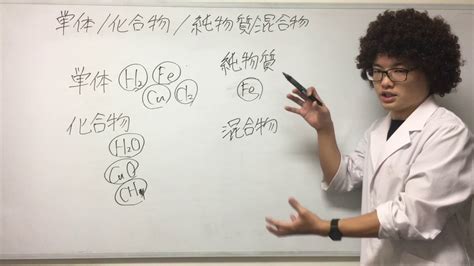 単体/化合物/純物質/混合物
単体 H₂ Fe
Cu Cl₂
化合物
H₂O
CuO
CH₄
純物質
Fe
混合物